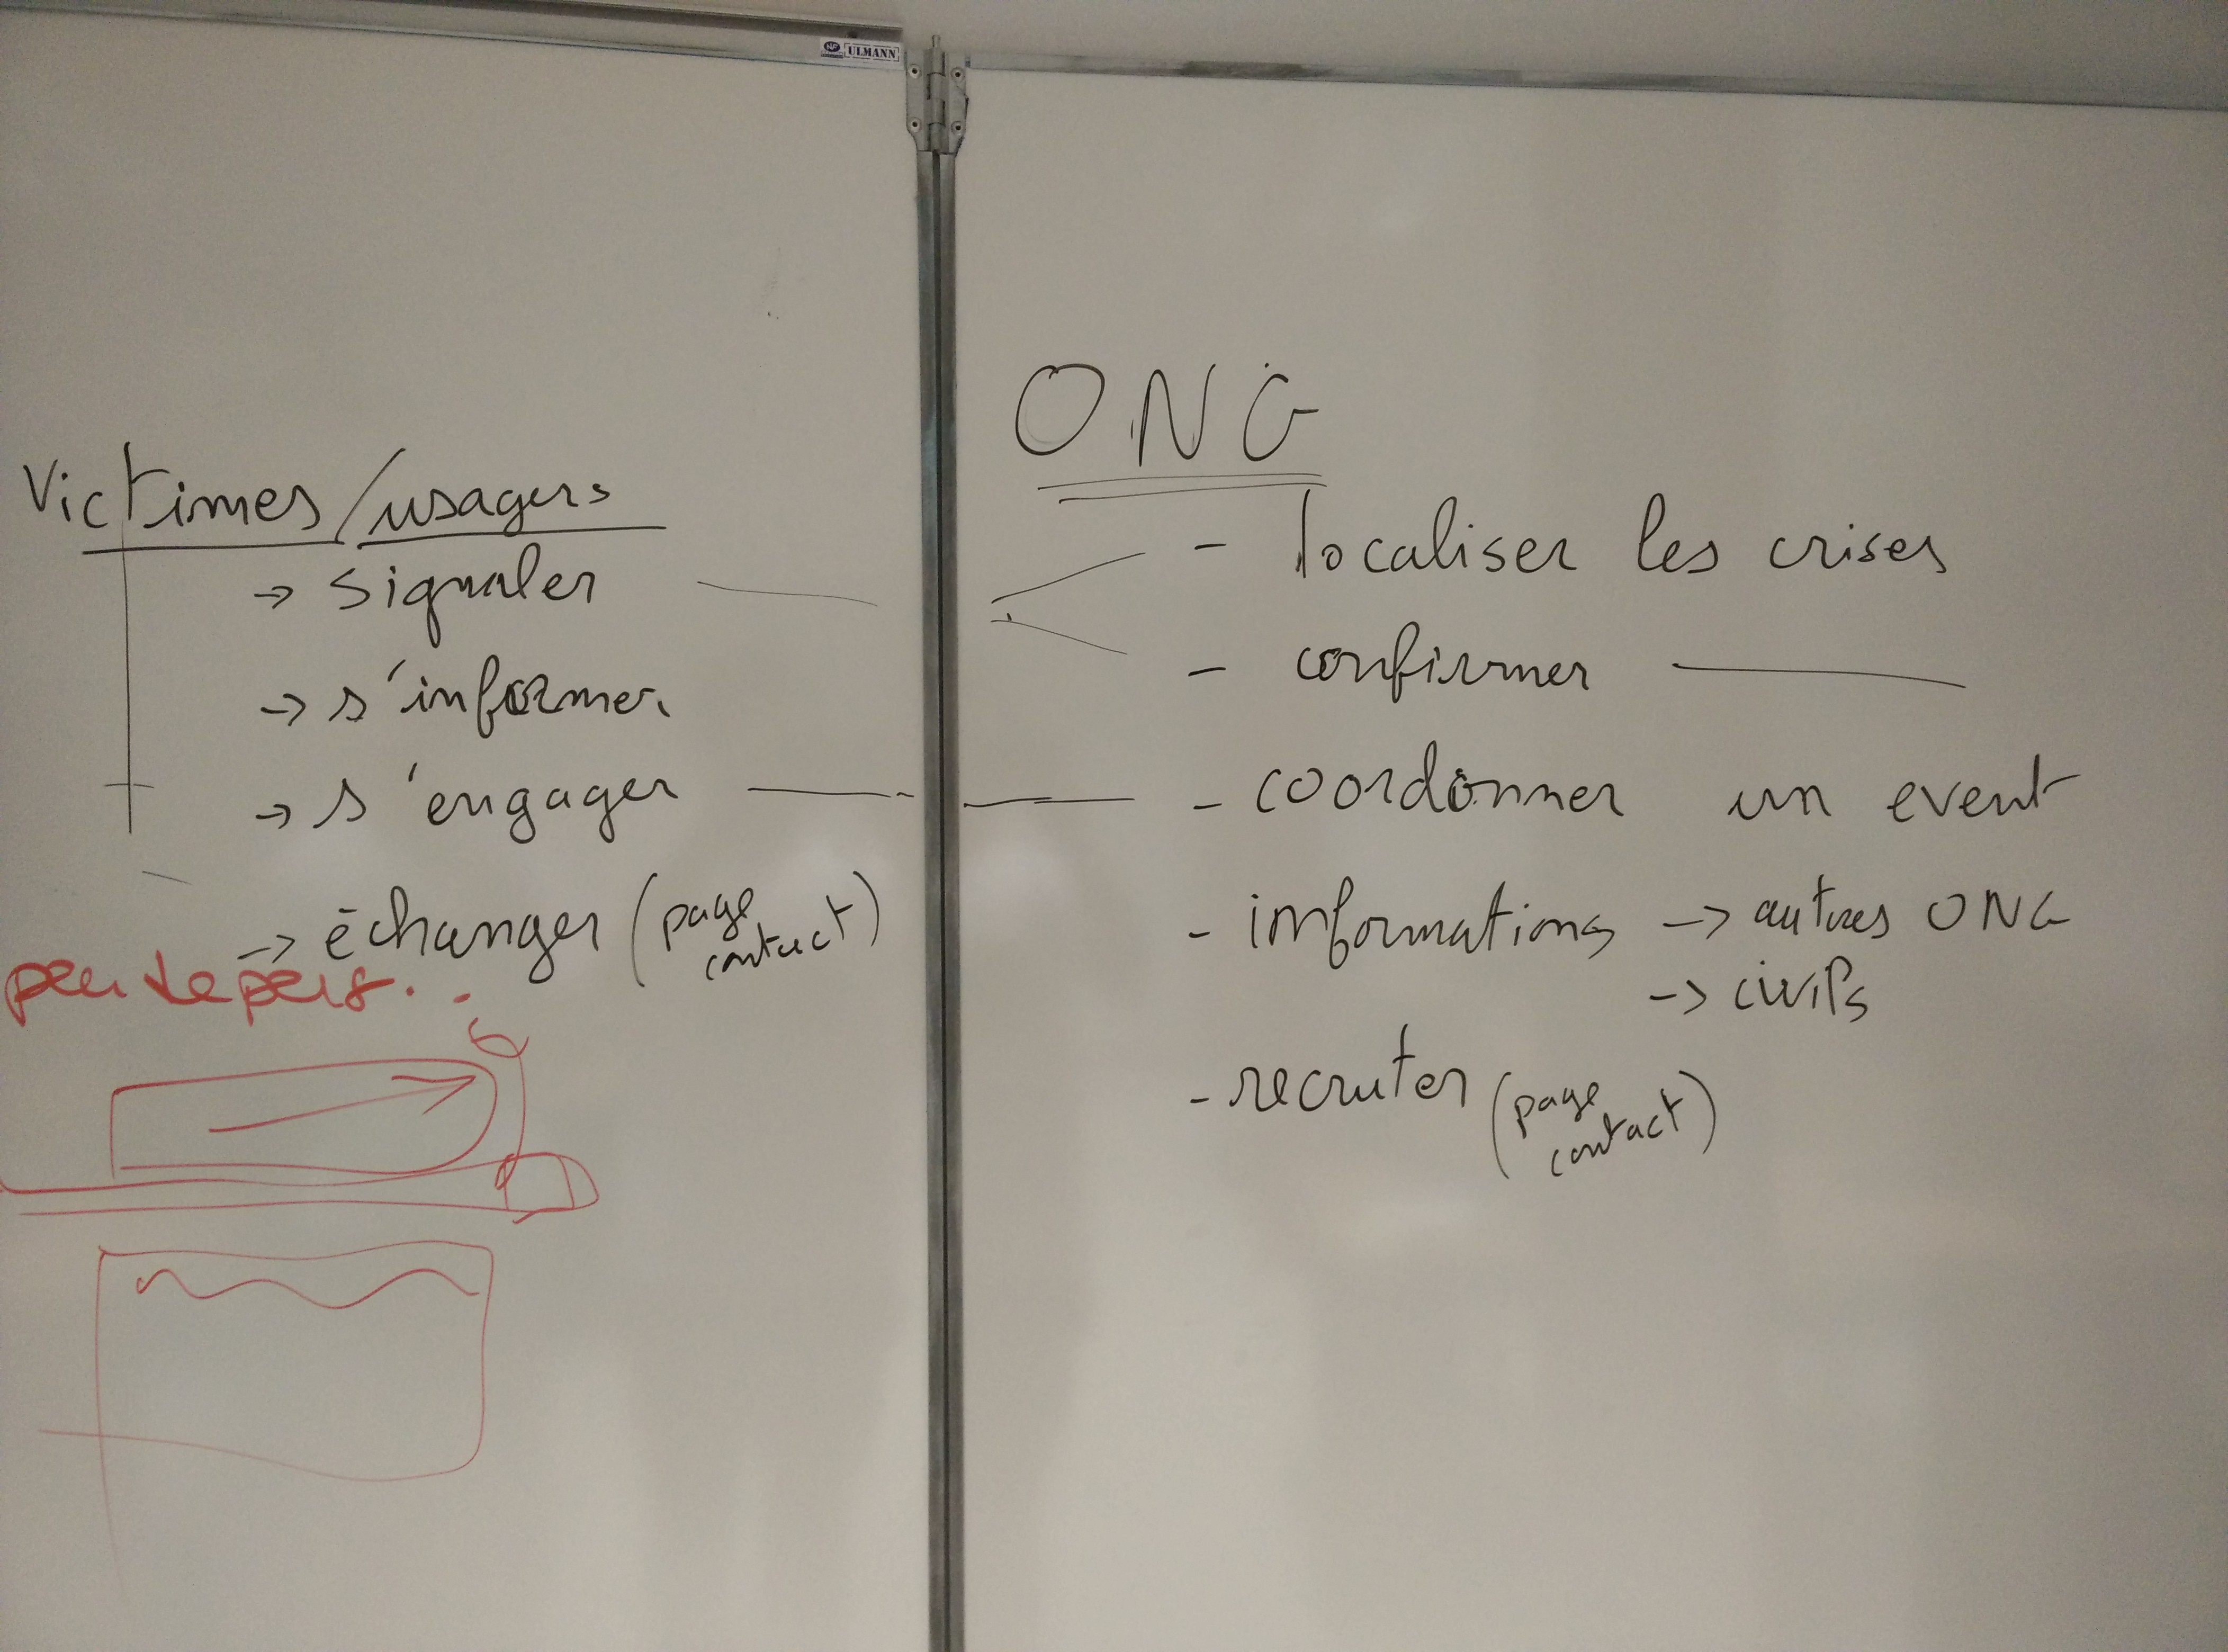 NF ULMANN
Victimes/usagers
→ signaler
→ s'informer
→ s'engager
→ échanger (page contact)
ONG
- localiser les crises
- confirmer
- coordonner un event
- informations → autres ONG
→ civils
- recruter (page contact)